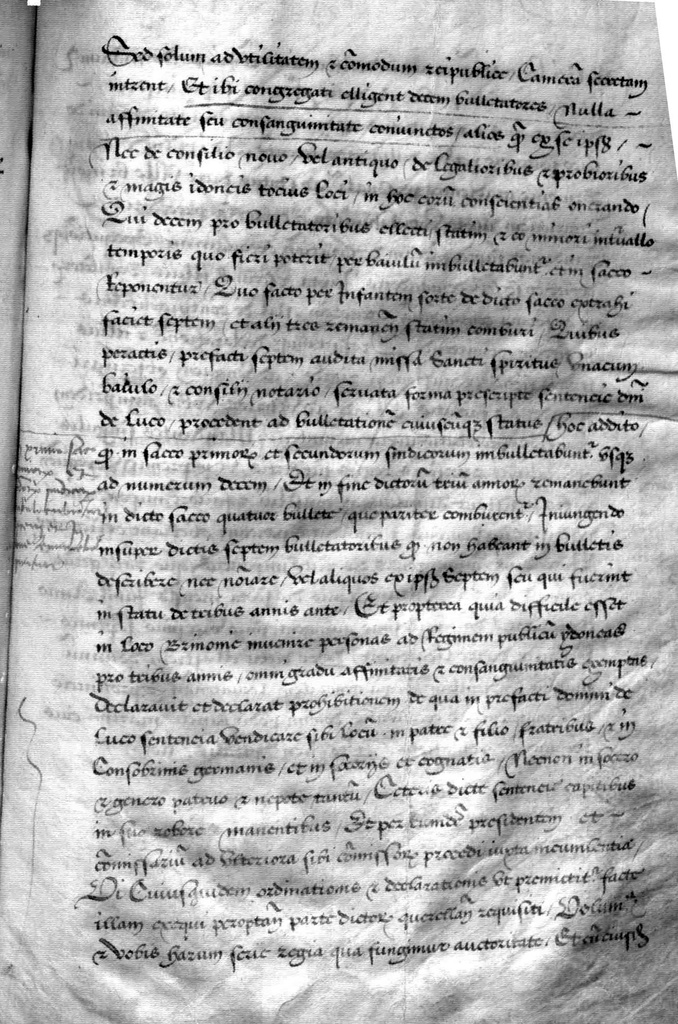 Sed solum ad vtilitatem & cõmodum reipublice / Camerã secretam
intrent / Et ibi congregati elligent decem bulletatores / Nulla ~
affinitate seu consanguinitate coniunctos / alios q̃ ex se ipsis / ~
Nec de consilio nouo / vel antiquo / de legalioribus & probioribus
& magis idoneis tocius loci / in hoc eorũ conscientias onerando /
Qui decem pro bulletatoribus ellecti / statim & eo minori intũallo
temporis quo fieri poterit per baiulũ imbulletabunt᷑ et in sacco ~
Reponentur / Quo facto per Infantem sorte de dicto sacco extrahi
faciet septem / et alij tres remanẽn statim comburi / Quibus
peractis / prefacti septem audita missa Sancti spiritus vnacum
baiulo / & consilij notario / seruata forma prescripte sentencie dñi
de Luco / procedent ad bulletationẽ cuiuscũqꝫ status / hoc addito /
q̃ in sacco primorꝫ et secundorum sindicorum imbulletabunt᷑ vsqꝫ
ad numerum decem / Et in fine dictorũ triũ annorꝫ remanebunt
in dicto sacco quatuor bullete / que pariter comburent᷑ / Iniungendo
insuper dictis septem bulletatoribus q̃ non habeant in bulletis
describere nec noĩare / vel aliquos ex ipsis septem seu qui fuerint
in statu de tribus annis ante / Et propterea quia difficile esset
in loco Brimonie inuenire personas ad Regimen publicũ ydoneas
pro tribus annis / omni gradu affinitatis & consanguinitatis exemptas /
Declarauit et declarat prohibitionem de qua in prefacti domini de
Luco sentencia vendicare sibi locũ in patre & filio / fratribus / & in
Consobrinis germanis / et in socerijs et cognatis / Necnon in socero
& genero patruo & nepote tantũ / Ceteris dicte sentencie capitibus
in suo robore manentibus / Et per eundẽ presidentem et ~
cõmissariũ ad vlteriora sibi cõmissorꝫ procedi iuxta incumbentia /
Di Cuiusquidem ordinationis & declarationis vt premictit᷑ facte
illam exequi peroptañ parte dictorꝫ querellañ requisiti / Volumus
& vobis harum serie regia qua fungimur auctoritate / Et